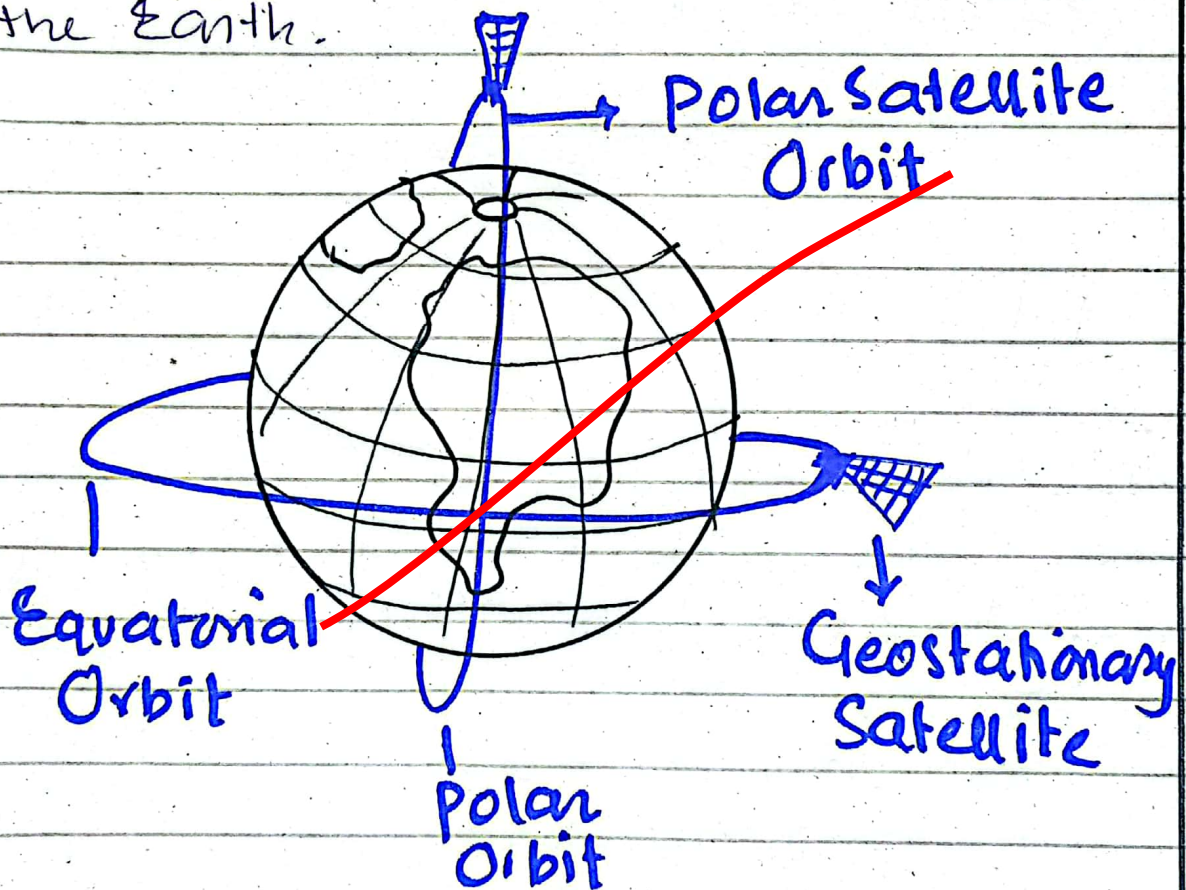 the Earth.
Polar Satellite
Orbit
Equatorial
Orbit
Geostationary
Satellite
Polar
Orbit